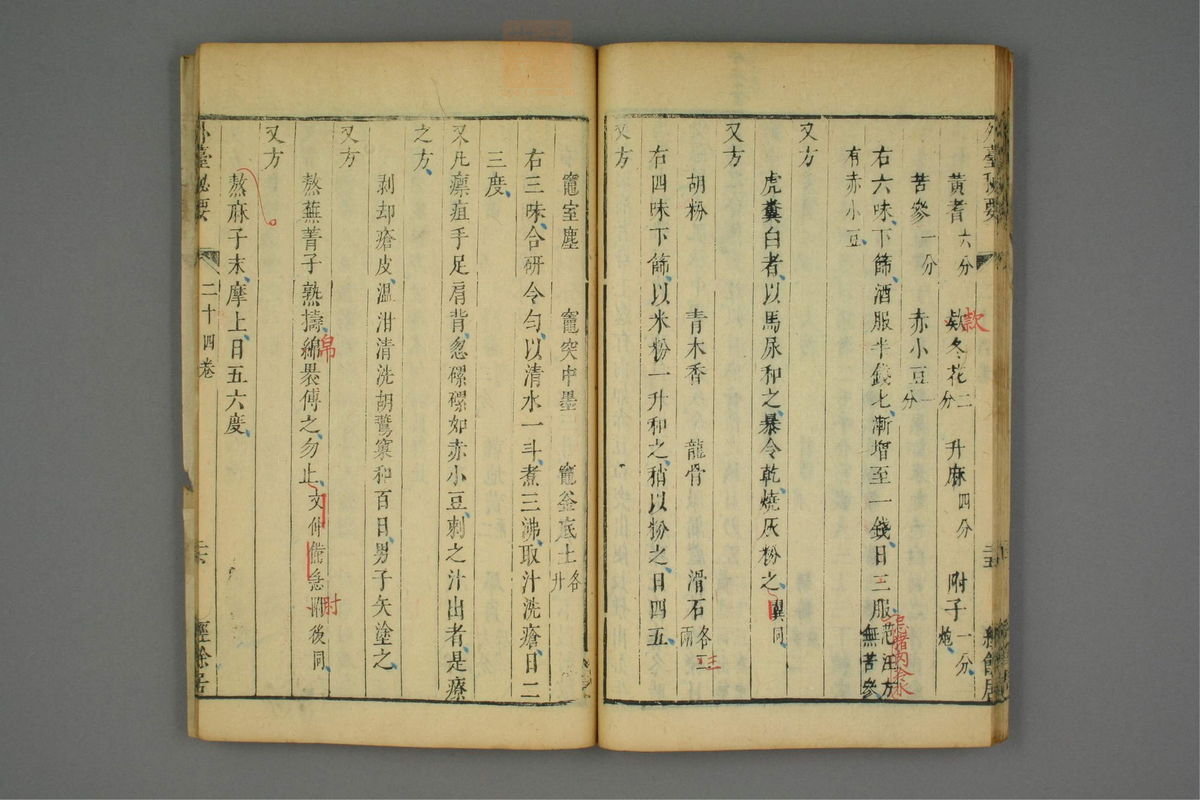 外臺秘要
黃耆六分 欵冬花二分 升麻四分 附子一分炮
款
苦參一分 赤小豆一分
右六味下篩酒服半錢匕漸增至一錢日三服范汪方無苦參
有赤小豆
又方
虎糞白者以馬尿和之暴令乾燒灰粉之翼同
又方
胡粉 青木香 龍骨 滑石各三兩
右四味下篩以米粉一升和之稍以粉之日四五
又方
竈室塵 竈突中墨 竈釜底土各一升
右三味合研令勻以清水一斗煮三沸取汁洗瘡日二
三度
又凡瘭疽手足肩背忽磥磥如赤小豆剥之汁出者是療
之方
剥却瘡皮温泔清洗胡鷰窠和百日男子矢塗之
又方
熬蕪菁子熟擣綿褁傅之勿止文仲備急肘後同
帛
肘
又方
熬麻子末摩上日五六度
外臺秘要
二十四卷
二六
經餘居